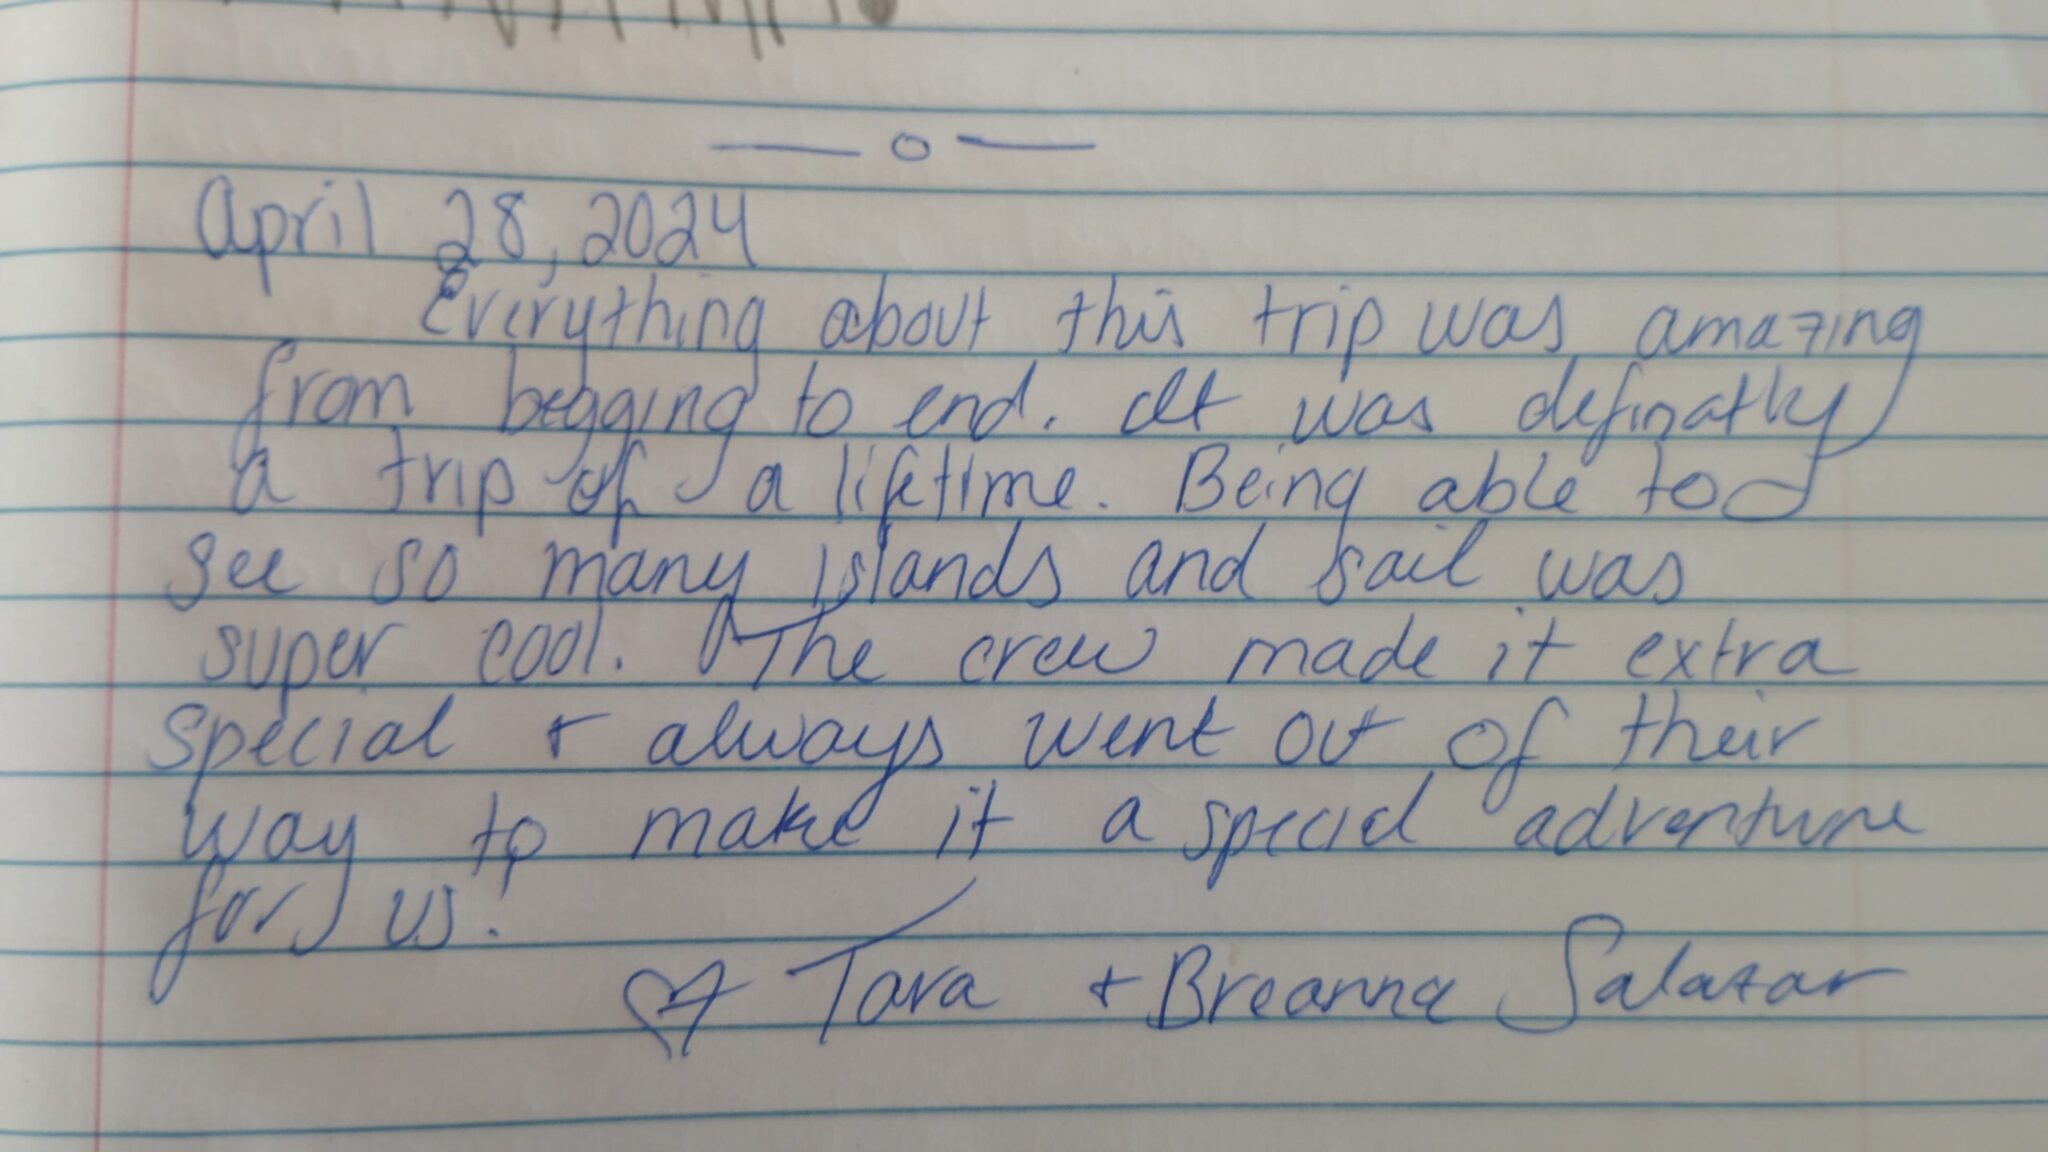 April 28, 2024
Everything about this trip was amazing
from begging to end. It was definatly
a trip of a lifetime. Being able to
see so many islands and sail was
super cool. The crew made it extra
special + always went out of their
way to make it a special adventure
for us!
♡ Tara + Breanna Salazar